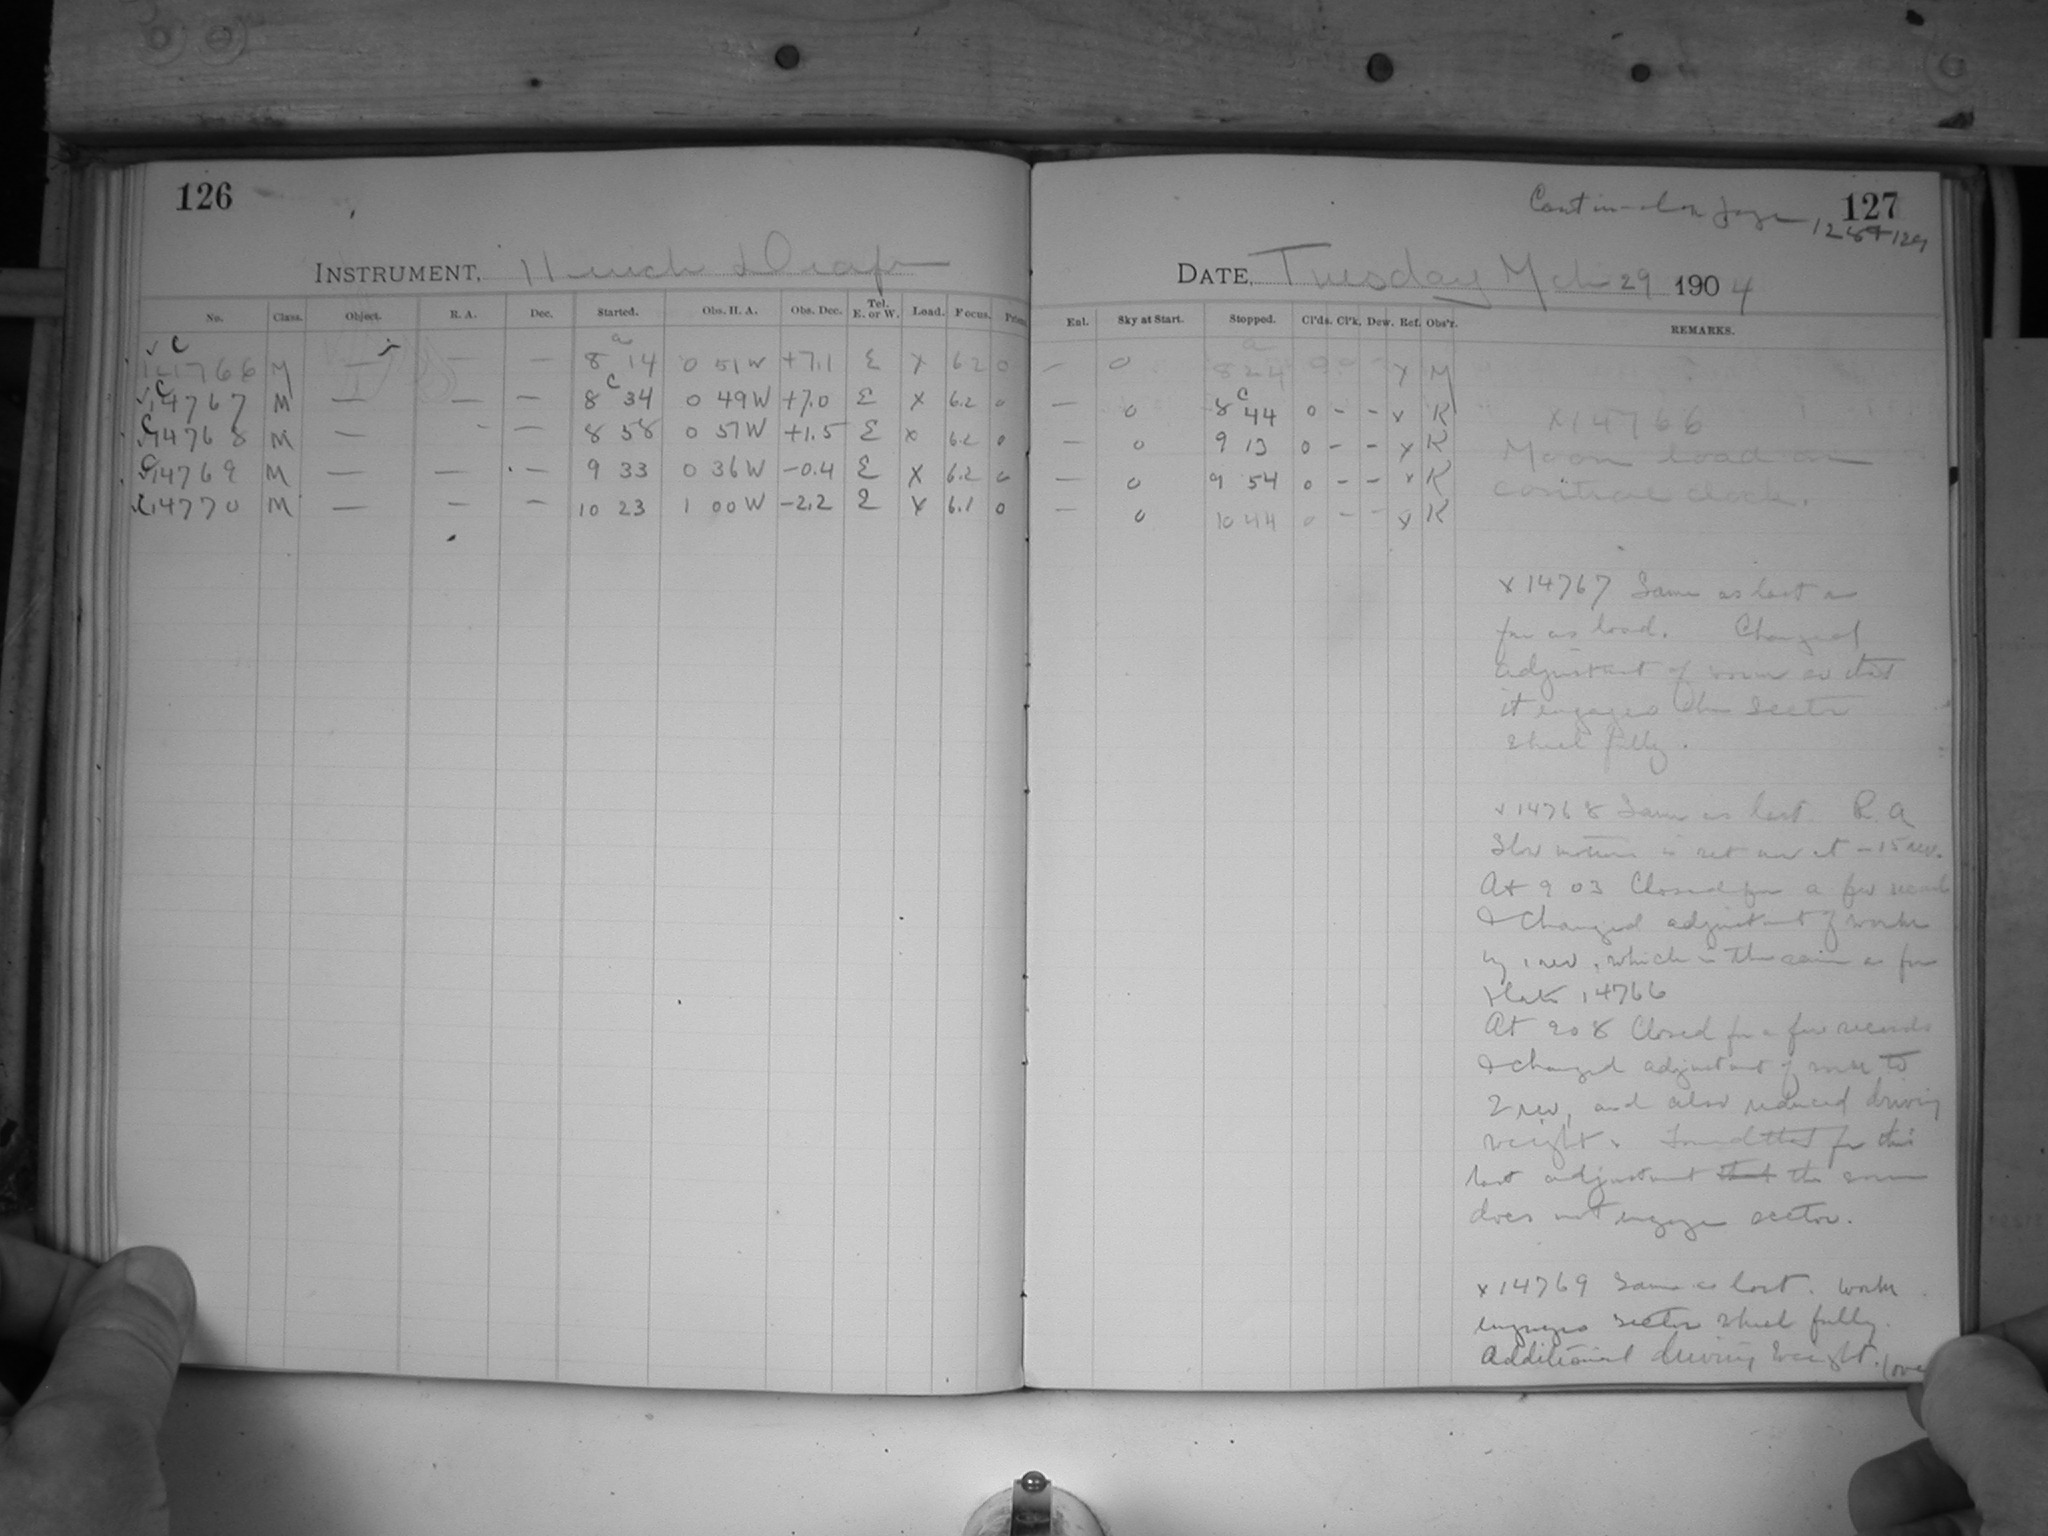 126
INSTRUMENT, 11 inch Draper
No. Class. Object. R. A. Dec. Started. Obs. H. A. Obs. Dec. Tel. E. or W. Load. Focus. Prism
a
C 14766 M — — 8 14 0 51 W +7.1 E X 6.2 0
C 14767 M — — — 8 C 34 0 49 W +7.0 E X 6.2 0
C 14768 M — — — 8 58 0 57 W +1.5 E X 6.2 0
C 14769 M — — — 9 33 0 36 W −0.4 E X 6.2 0
C 14770 M — — — 10 23 1 00 W −2.2 E X 6.1 0
Contin on page 128 + 129
127
DATE, Tuesday Mch 29 1904
Enl. Sky at Start. Stopped. Cl'ds. Cl'k. Dew. Ref. Obs'r. REMARKS.
a
— 0 8 24 0 - - X M
— 0 8 C 44 0 - - X K
— 0 9 13 0 - - X K
— 0 9 54 0 - - X K
— 0 10 44 0 - - X K
X14766
Moon load on
control clock.
X14767 Same as last as
far as load. Changed
adjustment of worm so that
it engages the sector
wheel fully.
X14768 Same as last. R. A
Slow motion is set now at −15 rev.
At 9 03 Closed for a few seconds
& changed adjustment of worm
by 1 rev, which is the same as for
plate 14766
At 9 08 Closed for a few seconds
& changed adjustment of worm to
2 rev, and also reduced driving
weight. Found that for this
last adjustment that the worm
does not engage sector.
X14769 Same as last. Worm
engages sector wheel fully.
Additional driving weight. (over